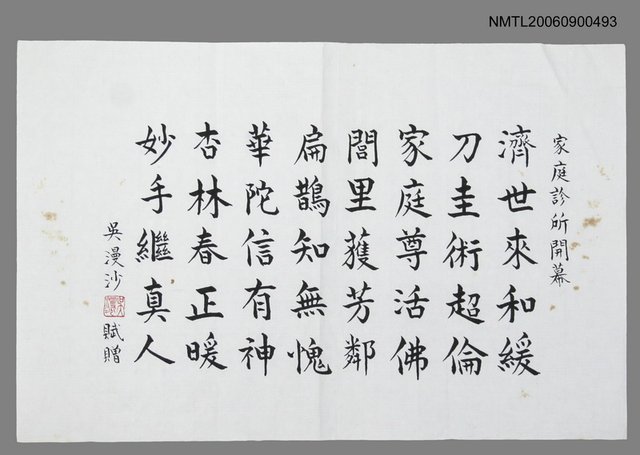 NMTL20060900493
家庭診所開幕
濟世來和緩
刀圭術超倫
家庭尊活佛
閭里獲芳鄰
扁鵲知無愧
華陀信有神
杏林春正暖
妙手繼真人
吳漫沙
賦贈